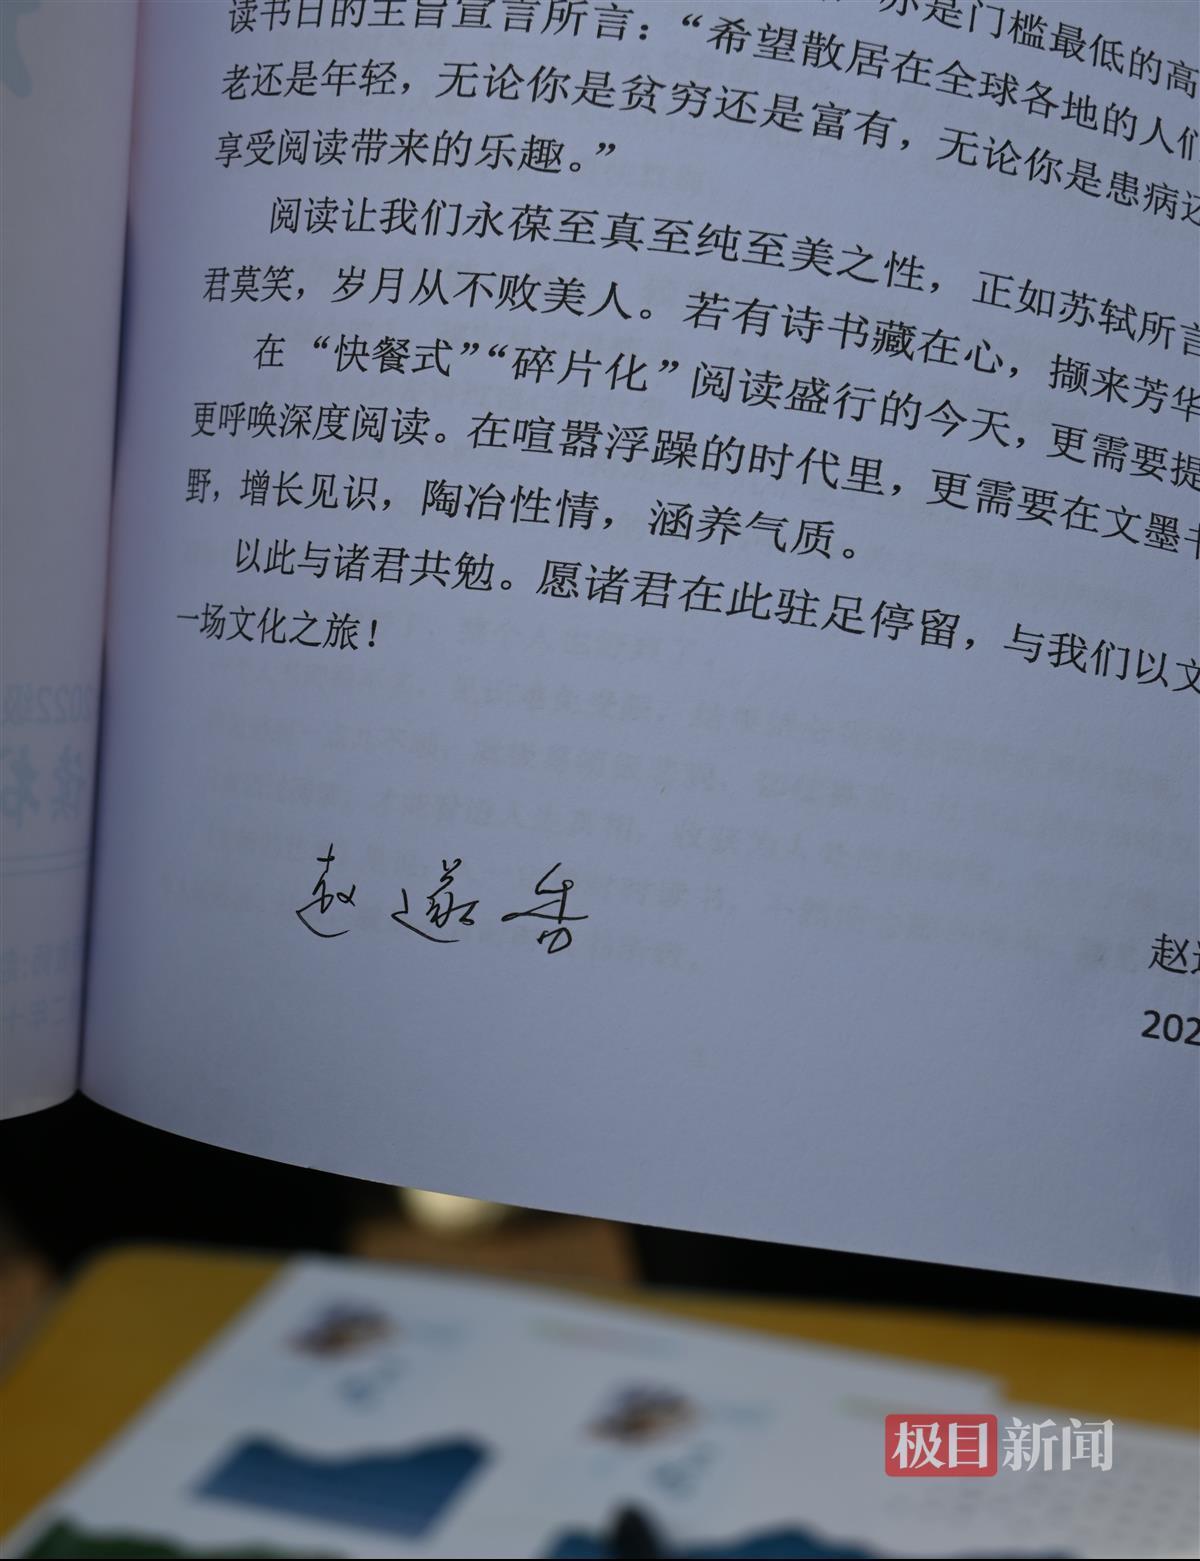 亦是门槛最低的高
读书日的主旨宣言所言：“希望散居在全球各地的人们
老还是年轻，无论你是贫穷还是富有，无论你是患病还
享受阅读带来的乐趣。”
阅读让我们永葆至真至纯至美之性，正如苏轼所言
君莫笑，岁月从不败美人。若有诗书藏在心，撷来芳华
在“快餐式”“碎片化”阅读盛行的今天，更需要提
更呼唤深度阅读。在喧嚣浮躁的时代里，更需要在文墨书
野，增长见识，陶冶性情，涵养气质。
以此与诸君共勉。愿诸君在此驻足停留，与我们以文
一场文化之旅！
赵
赵
202
极目新闻